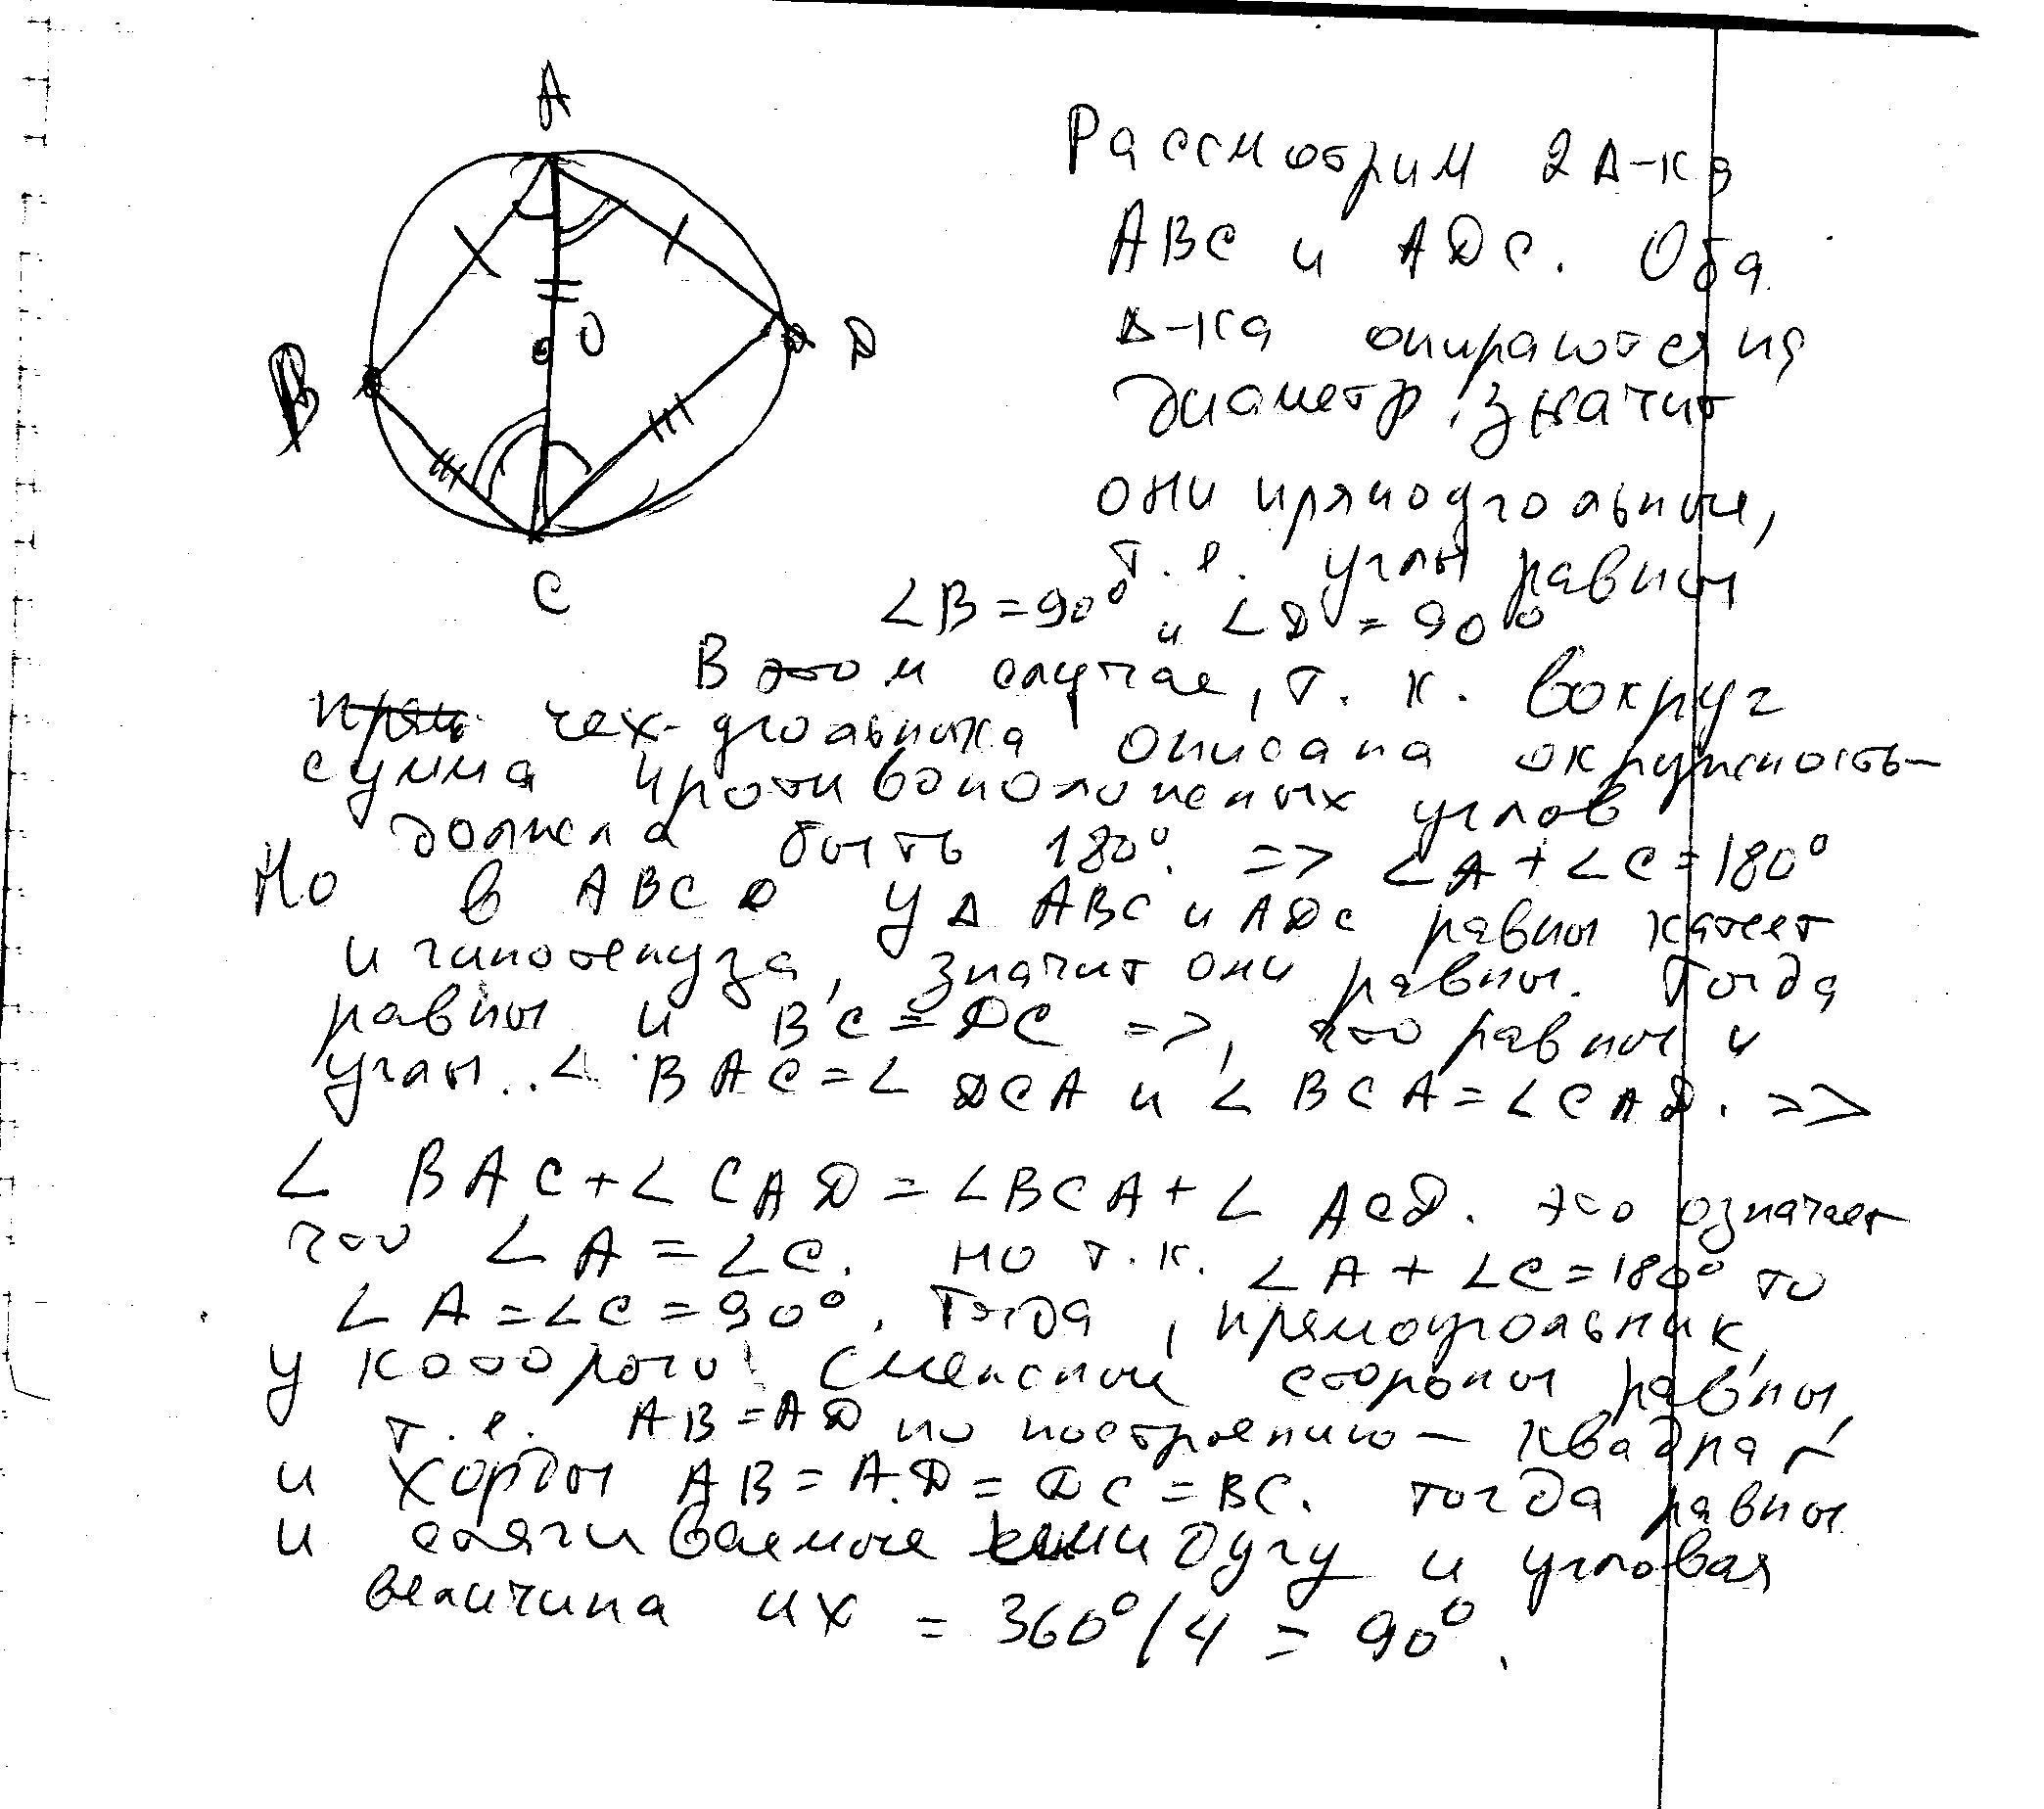 A
B
O
D
C
Рассмотрим 2 Δ-ка
ABC и ADC. Оба
Δ-ка опираются на
диаметр, значит
они прямоугольные,
т.е. углы равны
∠B=90° и ∠D=90°
В этом случае, т.к. вокруг
прям чех-угольника описана окружность-
сумма противоположеных углов
должна быть 180°. => ∠A+∠C=180°
Но в ABCD у Δ ABC и ADC равны катет
и гипотенуза, значит они равны. Тогда
равны и BC=DC =>, что равны и
углы.. ∠BAC=∠DCA и ∠BCA=∠CAD. =>
∠BAC+∠CAD=∠BCA+∠ACD. это означает
что ∠A=∠C. но т.к. ∠A+∠C=180° то
∠A=∠C=90°. Тогда, прямоугольник,
у которого смежные стороны равны,
т.е. AB=AD по построению- квадрат
и хорды AB=AD=DC=BC. тогда равны
и стягиваемые ими дугу и угловая
величина их = 360°/4 = 90°.